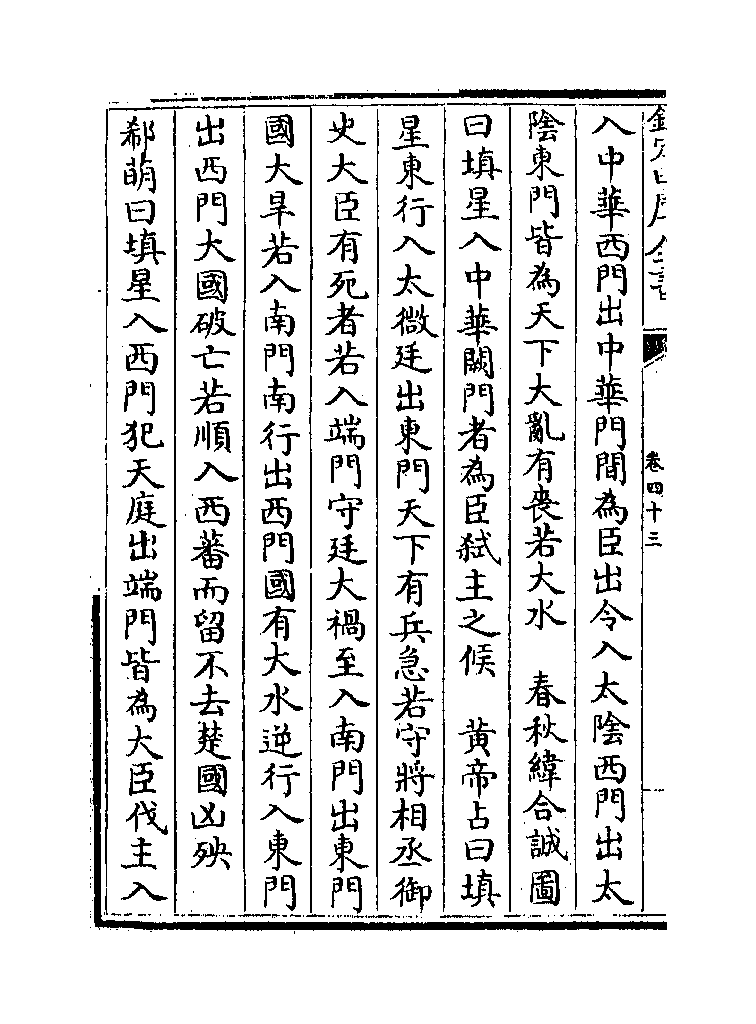 欽定四庫全書
卷四十三
入中華西門出中華門間為臣出令入太陰西門出太
陰東門皆為天下大亂有喪若大水　春秋緯合誠圖
曰填星入中華闕門者為臣弑主之候　黄帝占曰填
星東行入太微廷出東門天下有兵急若守將相丞御
史大臣有死者若入端門守廷大禍至入南門出東門
國大旱若入南門南行出西門國有大水逆行入東門
出西門大國破亡若順入西蕃而留不去楚國凶殃
郗萌曰填星入西門犯天庭出端門皆為大臣伐主入